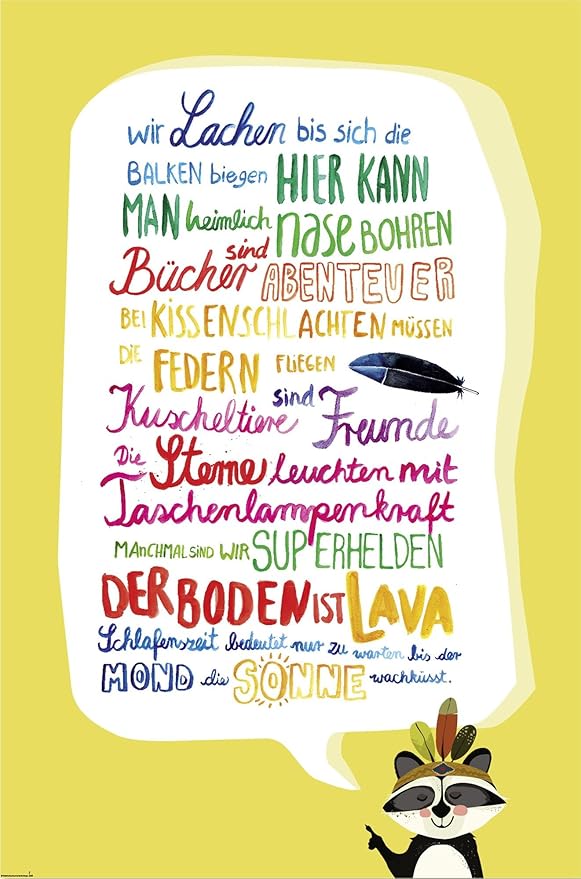 wir Lachen bis sich die
BALKEN biegen HIER KANN
MAN heimlich nase BOHREN
Bücher sind ABENTEUER
BEI KISSENSCHLACHTEN MÜSSEN
DIE FEDERN FLIEGEN
Kuscheltiere sind Freunde
Die Sterne leuchten mit
Taschenlampenkraft
MANCHMAL SIND WIR SUPERHELDEN
DER BODEN IST LAVA
Schlafenszeit bedeutet nur zu warten bis der
MOND die SONNE wachküsst.